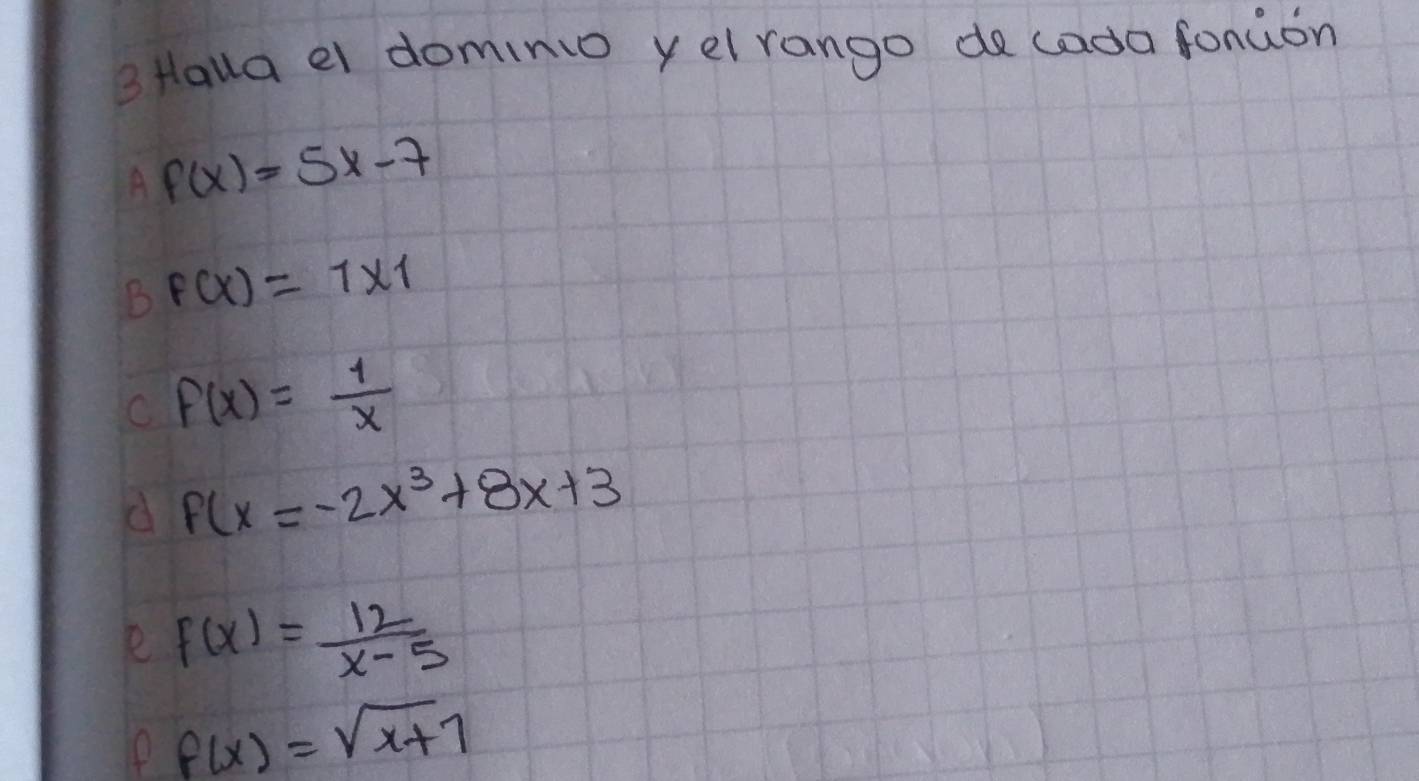 3 Halla el dominio y el rango de cada fonción
A f(x) = 5x-7
B f(x) = 1x1
C f(x) = 1/x
d f(x = -2x³+8x+3
e f(x) = 12/x-5
f f(x) = √x+7